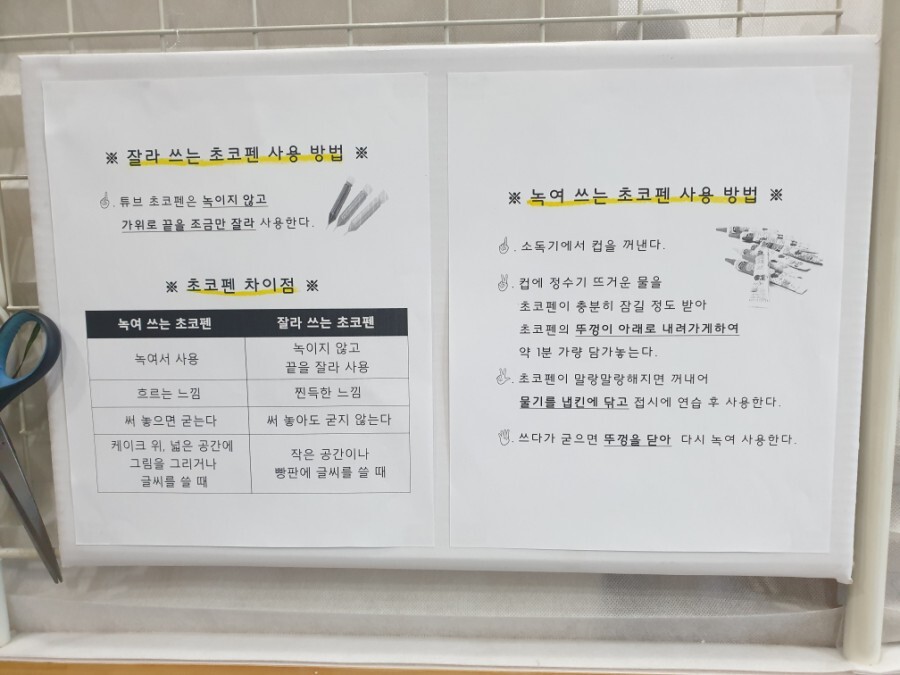 ※ 잘라 쓰는 초코펜 사용 방법 ※
☝. 튜브 초코펜은 녹이지 않고
가위로 끝을 조금만 잘라 사용한다.
※ 초코펜 차이점 ※
녹여 쓰는 초코펜 잘라 쓰는 초코펜
녹여서 사용 녹이지 않고
끝을 잘라 사용
흐르는 느낌 찐득한 느낌
써 놓으면 굳는다 써 놓아도 굳지 않는다
케이크 위, 넓은 공간에
그림을 그리거나
글씨를 쓸 때
작은 공간이나
빵판에 글씨를 쓸 때
※ 녹여 쓰는 초코펜 사용 방법 ※
☝. 소독기에서 컵을 꺼낸다.
✌. 컵에 정수기 뜨거운 물을
초코펜이 충분히 잠길 정도 받아
초코펜의 뚜껑이 아래로 내려가게하여
약 1분 가량 담가놓는다.
초코펜이 말랑말랑해지면 꺼내어
물기를 냅킨에 닦고 접시에 연습 후 사용한다.
쓰다가 굳으면 뚜껑을 닫아 다시 녹여 사용한다.